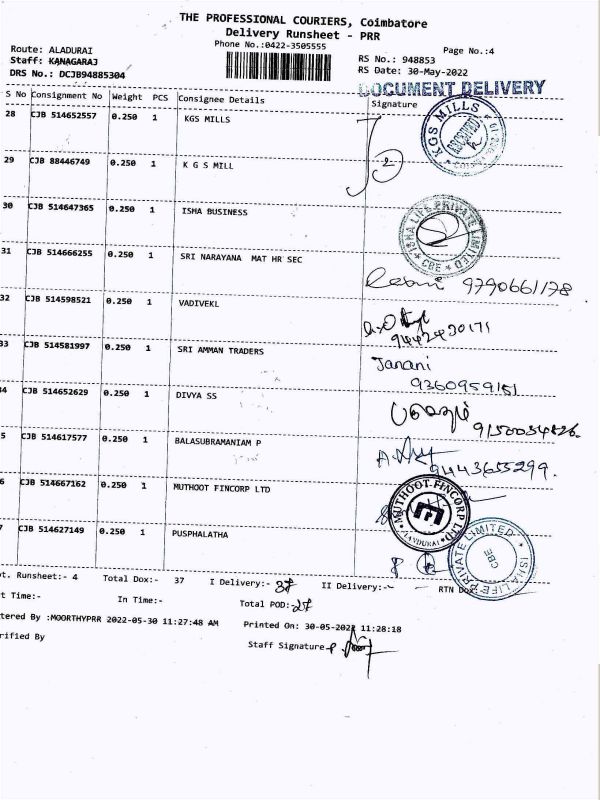 THE PROFESSIONAL COURIERS, Coimbatore
Delivery Runsheet - PRR
Phone No.:0422-3505555
Page No.:4
Route: ALADURAI
Staff: KANAGARAJ
DRS No.: DCJB94885304
RS No.: 948853
RS Date: 30-May-2022
DOCUMENT DELIVERY
S No Consignment No Weight PCS Consignee Details Signature
28 CJB 514652557 0.250 1 KGS MILLS
KGS MILLS RECEIVED
29 CJB 88446749 0.250 1 K G S MILL
2
30 CJB 514647365 0.250 1 ISHA BUSINESS
ISHA LIFE PRIVATE LIMITED * CBE *
31 CJB 514666255 0.250 1 SRI NARAYANA MAT HR SEC
9790661178
32 CJB 514598521 0.250 1 VADIVEKL
9442420171
33 CJB 514581997 0.250 1 SRI AMMAN TRADERS
Janani
9360959151
4 CJB 514652629 0.250 1 DIVYA SS
5 CJB 514617577 0.250 1 BALASUBRAMANIAM P
9443655299.
6 CJB 514667162 0.250 1 MUTHOOT FINCORP LTD
MUTHOOT FINCORP LTD
7 CJB 514627149 0.250 1 PUSPHALATHA
ISHA LIFE PRIVATE LIMITED * CBE
t. Runsheet:- 4 Total Dox:- 37 I Delivery:- 37 II Delivery:- RTN Dox
t Time:- In Time:- Total POD:- 27
tered By :MOORTHYPRR 2022-05-30 11:27:48 AM Printed On: 30-05-2022 11:28:18
rified By Staff Signature